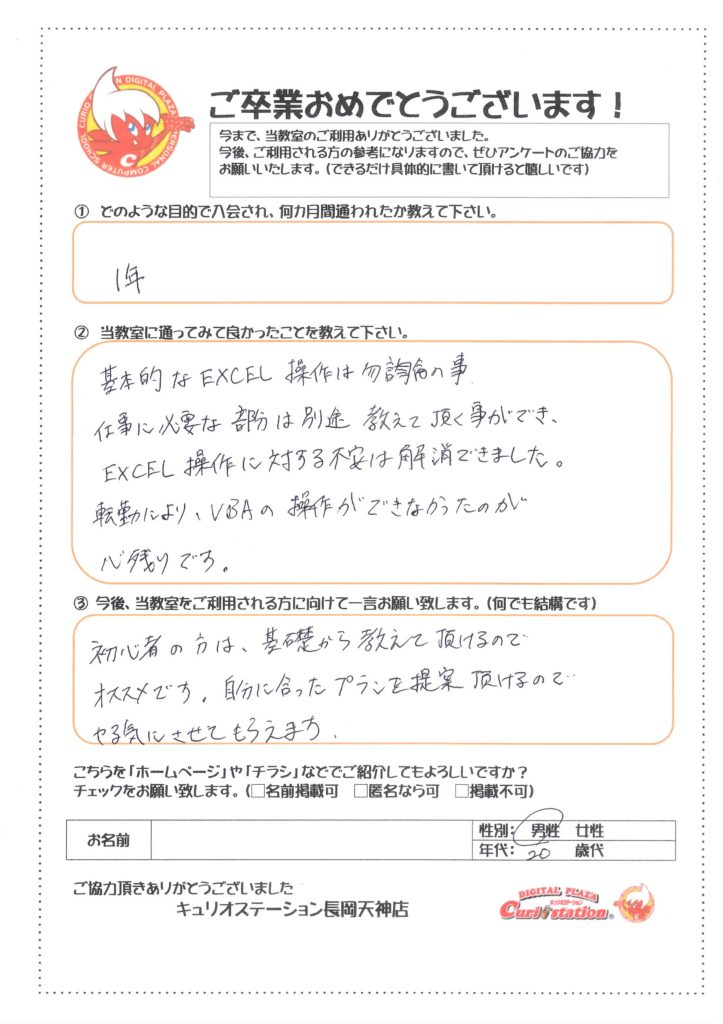 CURIO STATION DIGITAL PLAZA PERSONAL COMPUTER SCHOOL
C
ご卒業おめでとうございます！
今まで、当教室のご利用ありがとうございました。
今後、ご利用される方の参考になりますので、ぜひアンケートのご協力を
お願いいたします。（できるだけ具体的に書いて頂けると嬉しいです）
① どのような目的で入会され、何カ月間通われたか教えて下さい。
1年
② 当教室に通ってみて良かったことを教えて下さい。
基本的なEXCEL操作は勿論の事
仕事に必要な部分は別途教えて頂く事ができ、
EXCEL操作に対する不安は解消できました。
転勤により、VBAの操作ができなかったのが
心残りです。
③ 今後、当教室をご利用される方に向けて一言お願い致します。（何でも結構です）
初心者の方は、基礎から教えて頂けるので
オススメです。自分に合ったプランを提案頂けるので
やる気にさせてもらえます。
こちらを「ホームページ」や「チラシ」などでご紹介してもよろしいですか？
チェックをお願い致します。（□名前掲載可 □匿名なら可 □掲載不可）
お名前
性別： 男性 女性
年代： 20 歳代
ご協力頂きありがとうございました
キュリオステーション長岡天神店
DIGITAL PLAZA
キュリオステーション
Curio station®